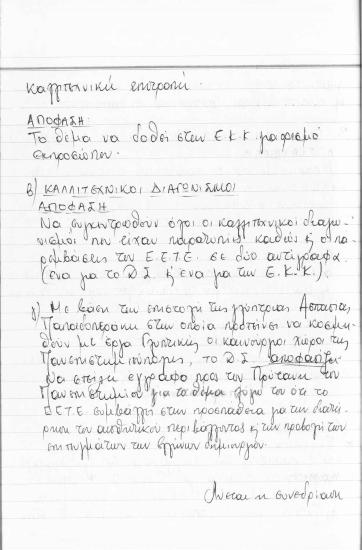 καλλιτεχνική επιτροπή.
ΑΠΟΦΑΣΗ:
Το θέμα να δοθεί στην Ε.Κ.Κ. για ορισμό
εκπροσώπου.
β) ΚΑΛΛΙΤΕΧΝΙΚΟΙ ΔΙΑΓΩΝΙΣΜΟΙ
ΑΠΟΦΑΣΗ
Να συγκεντρωθούν όλοι οι καλλιτεχνικοί διαγω-
νισμοί που είχαν παρατυπίες καθώς κ οι πα-
ρεμβάσεις του Ε.Ε.Τ.Ε. σε δύο αντίγραφα
(ένα για το Δ.Σ. κ ένα για την Ε.Κ.Κ.).
γ) Με βάση την επιστολή της γλύπτριας Ασπασίας
Παπαδοπεράκη στην οποία προτείνει να κοσμη-
θούν με έργα γλυπτικής οι καινούργιοι χώροι της
Πανεπιστημιούπολης, το Δ.Σ. αποφασίζει
Να στείλει έγγραφο προς τον Πρύτανη του
Πανεπιστημίου για το θέμα λόγω του ότι το
Ε.Ε.Τ.Ε συμβάλλει στην προσπάθεια για την διατή-
ρηση του αισθητικού περιβάλλοντος κ την προβολή των
επιτευγμάτων των ελλήνων δημιουργών.
Λύεται η συνεδρίαση